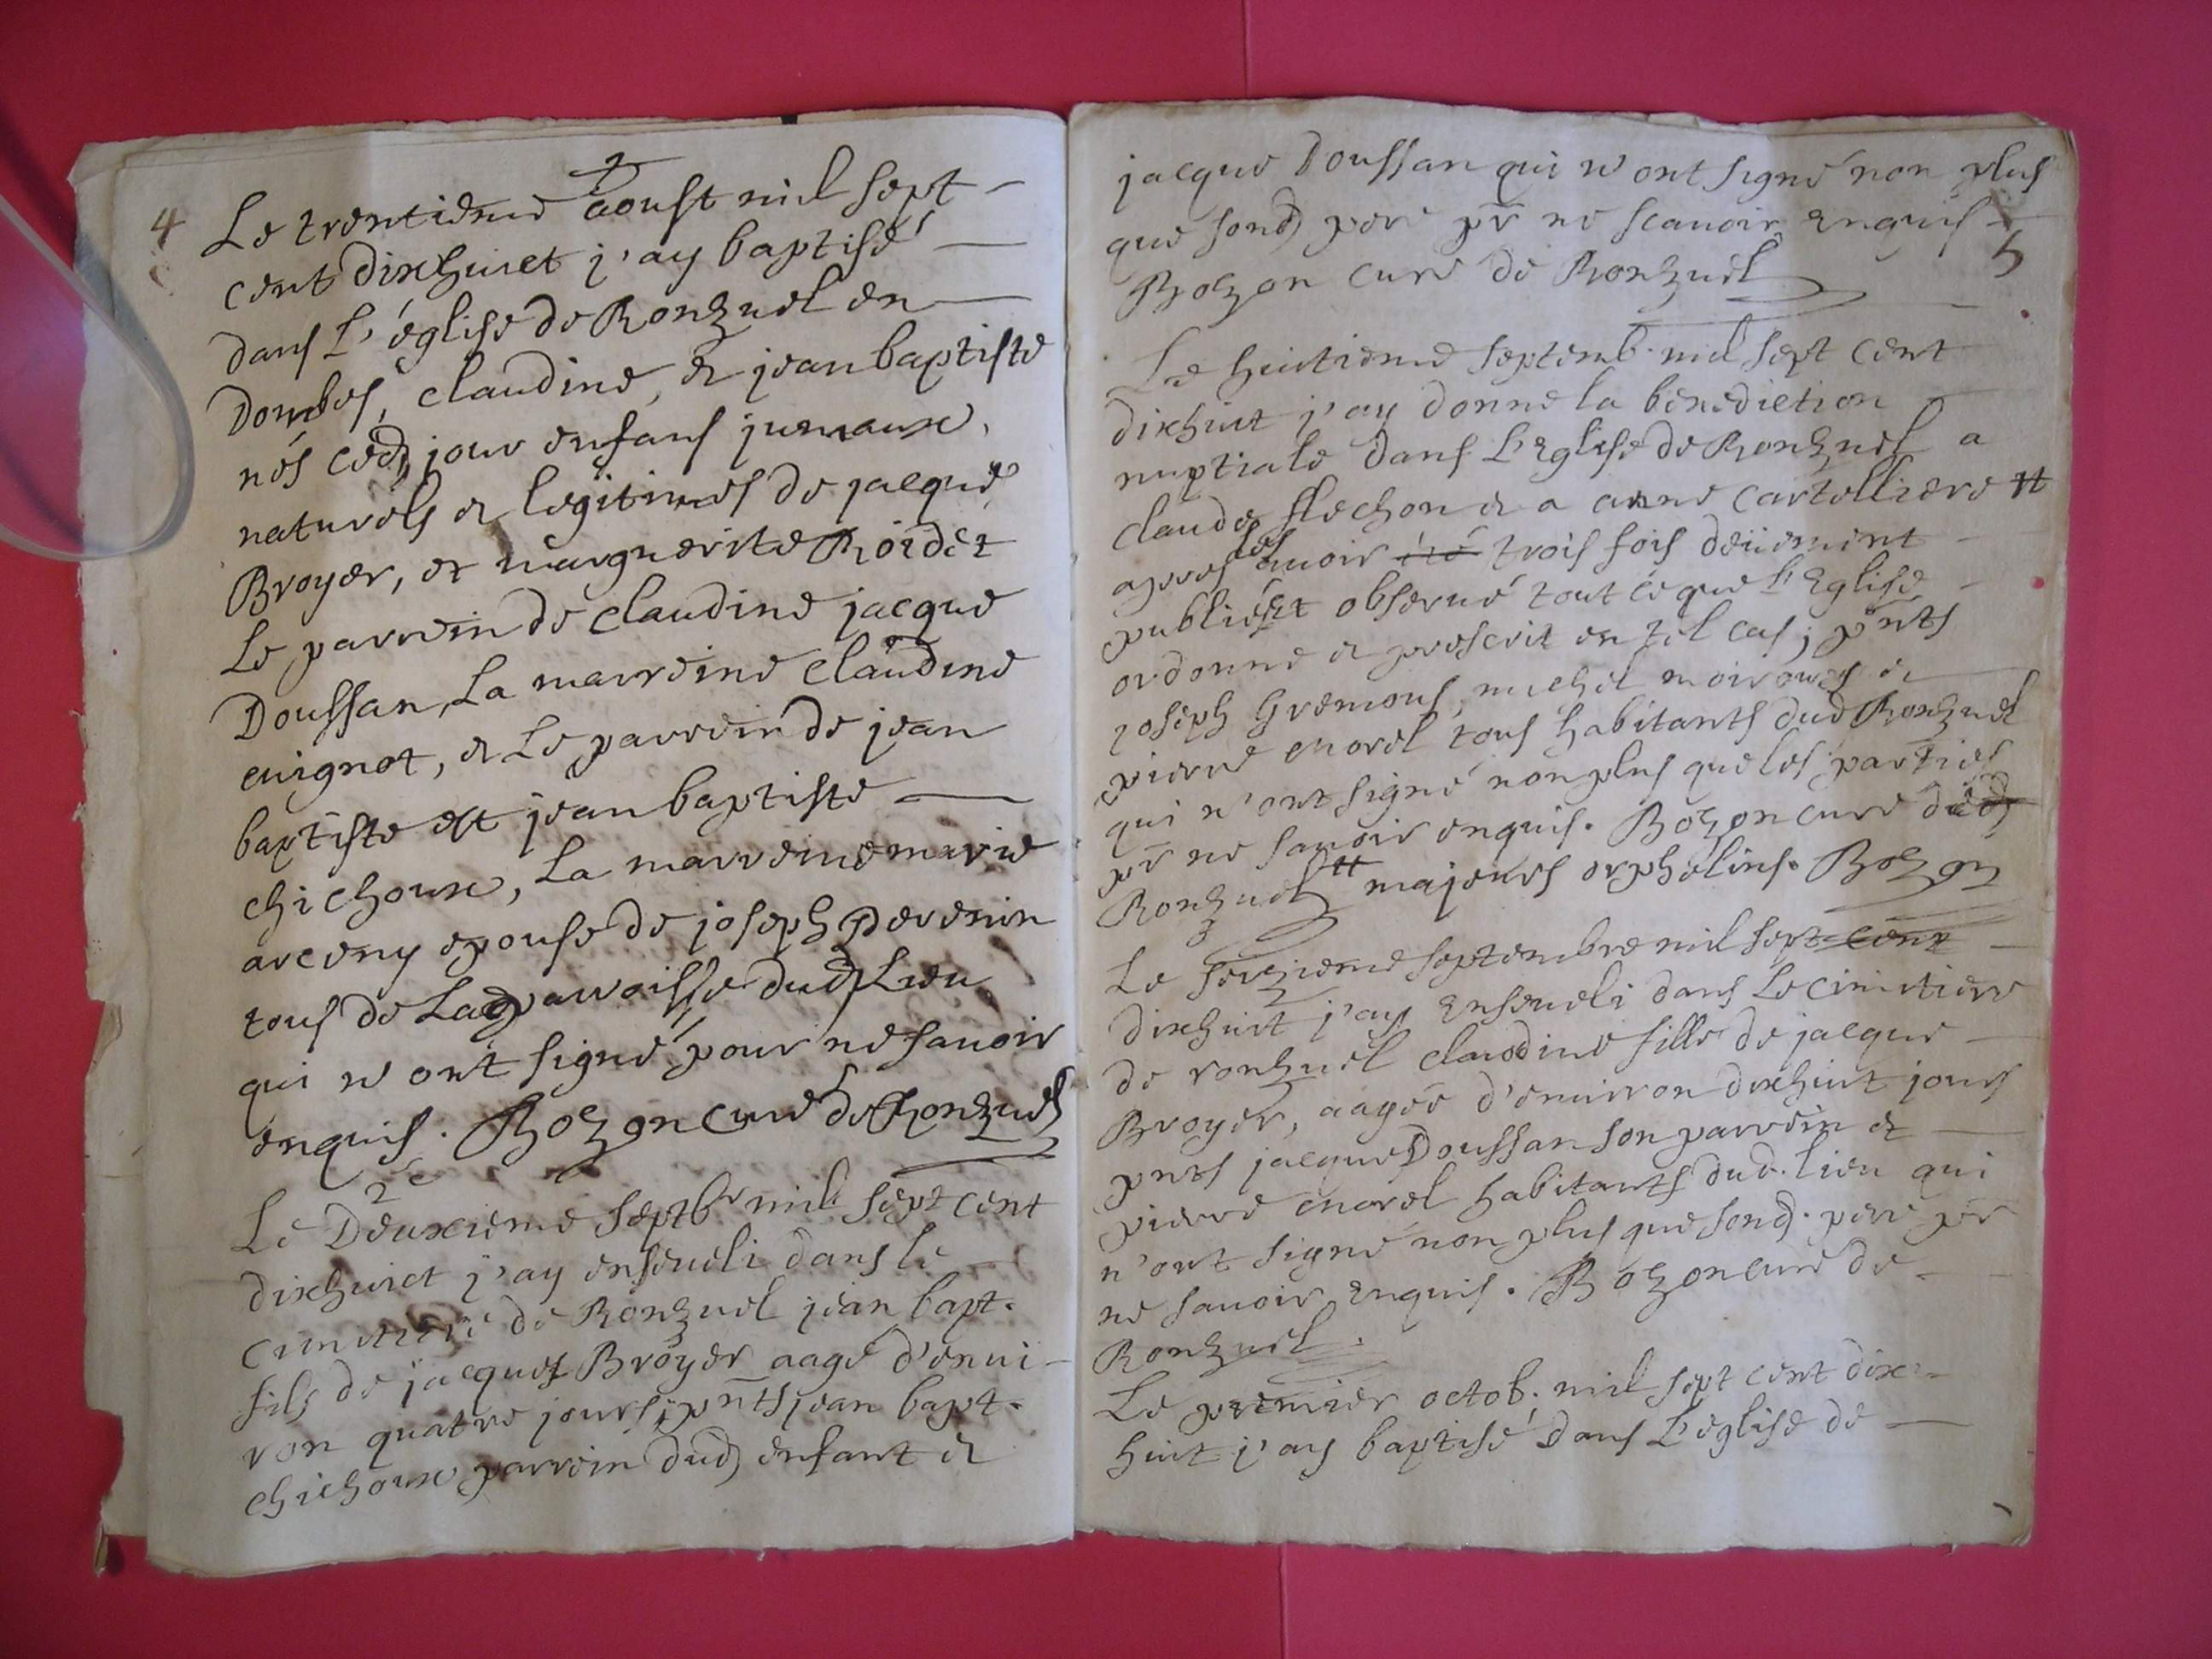 4
Le trentieme aoust mil sept
cent dixhuict j'ay baptisé
dans L'église de Ronzuel en
Dombes, claudine, et jean baptiste
nés ced. jour enfans jumeaux,
naturels et legitimes de jacque
Broyer, et marguerite Roidet
Le parrein de claudine jacque
Doussan, La marreine Claudine
, et Le parrein de jean
baptiste est jean baptiste
chichoux, La marreine marie
arceny epouse de joseph
tous de Lad. parroisse dud. Lieu
qui n'ont signé pour ne savoir
enquis. Bozon Curé de Ronzuel
2e
Le Deuxieme septbr mil sept cent
dixhuict j'ay enseveli dans le
cimitiere de Ronzuel jean bapt.
fils de jacques Broyer aagé d'envi-
ron quatre jours; pnts jean bapt.
chichoux parrein dud. enfant et
jacque Doussan qui n'ont signé non plus
que sond. pere pr ne scavoir enquis
5
Bozon Curé de Ronzuel
Le huitieme septemb. mil sept cent
dixhuit j'ay donné la benediction
nuptiale dans L'Eglise de Ronzuel a
claude flechon et a anne Cartelliere #
apres les avoir été trois fois deüement
publiés et observé tout ce que L'Eglise
ordonne et prescrit en tel cas; pnts
joseph Gremons, michel et
pierre morel tous habitants dud. Ronzuel
qui n'ont signé non plus que les parties
pr ne savoir enquis. Bozon curé dud.
Ronzuel # majeurs orphelins. Bozon
Le seizieme septembre mil sept cent
dixhuit j'ay Enseveli dans Le cimitiere
de ronzuel claudine fille de jacque
Broyer, aagée d'environ dixhuit jours
pnts jacque Doussan son parrein et
pierre morel habitants dud. lieu qui
n'ont signé non plus que sond. pere pr
ne savoir Enquis. Bozon curé de
Ronzuel.
Le premier octob. mil sept cent dix-
huit j'ay baptisé Dans L'église de